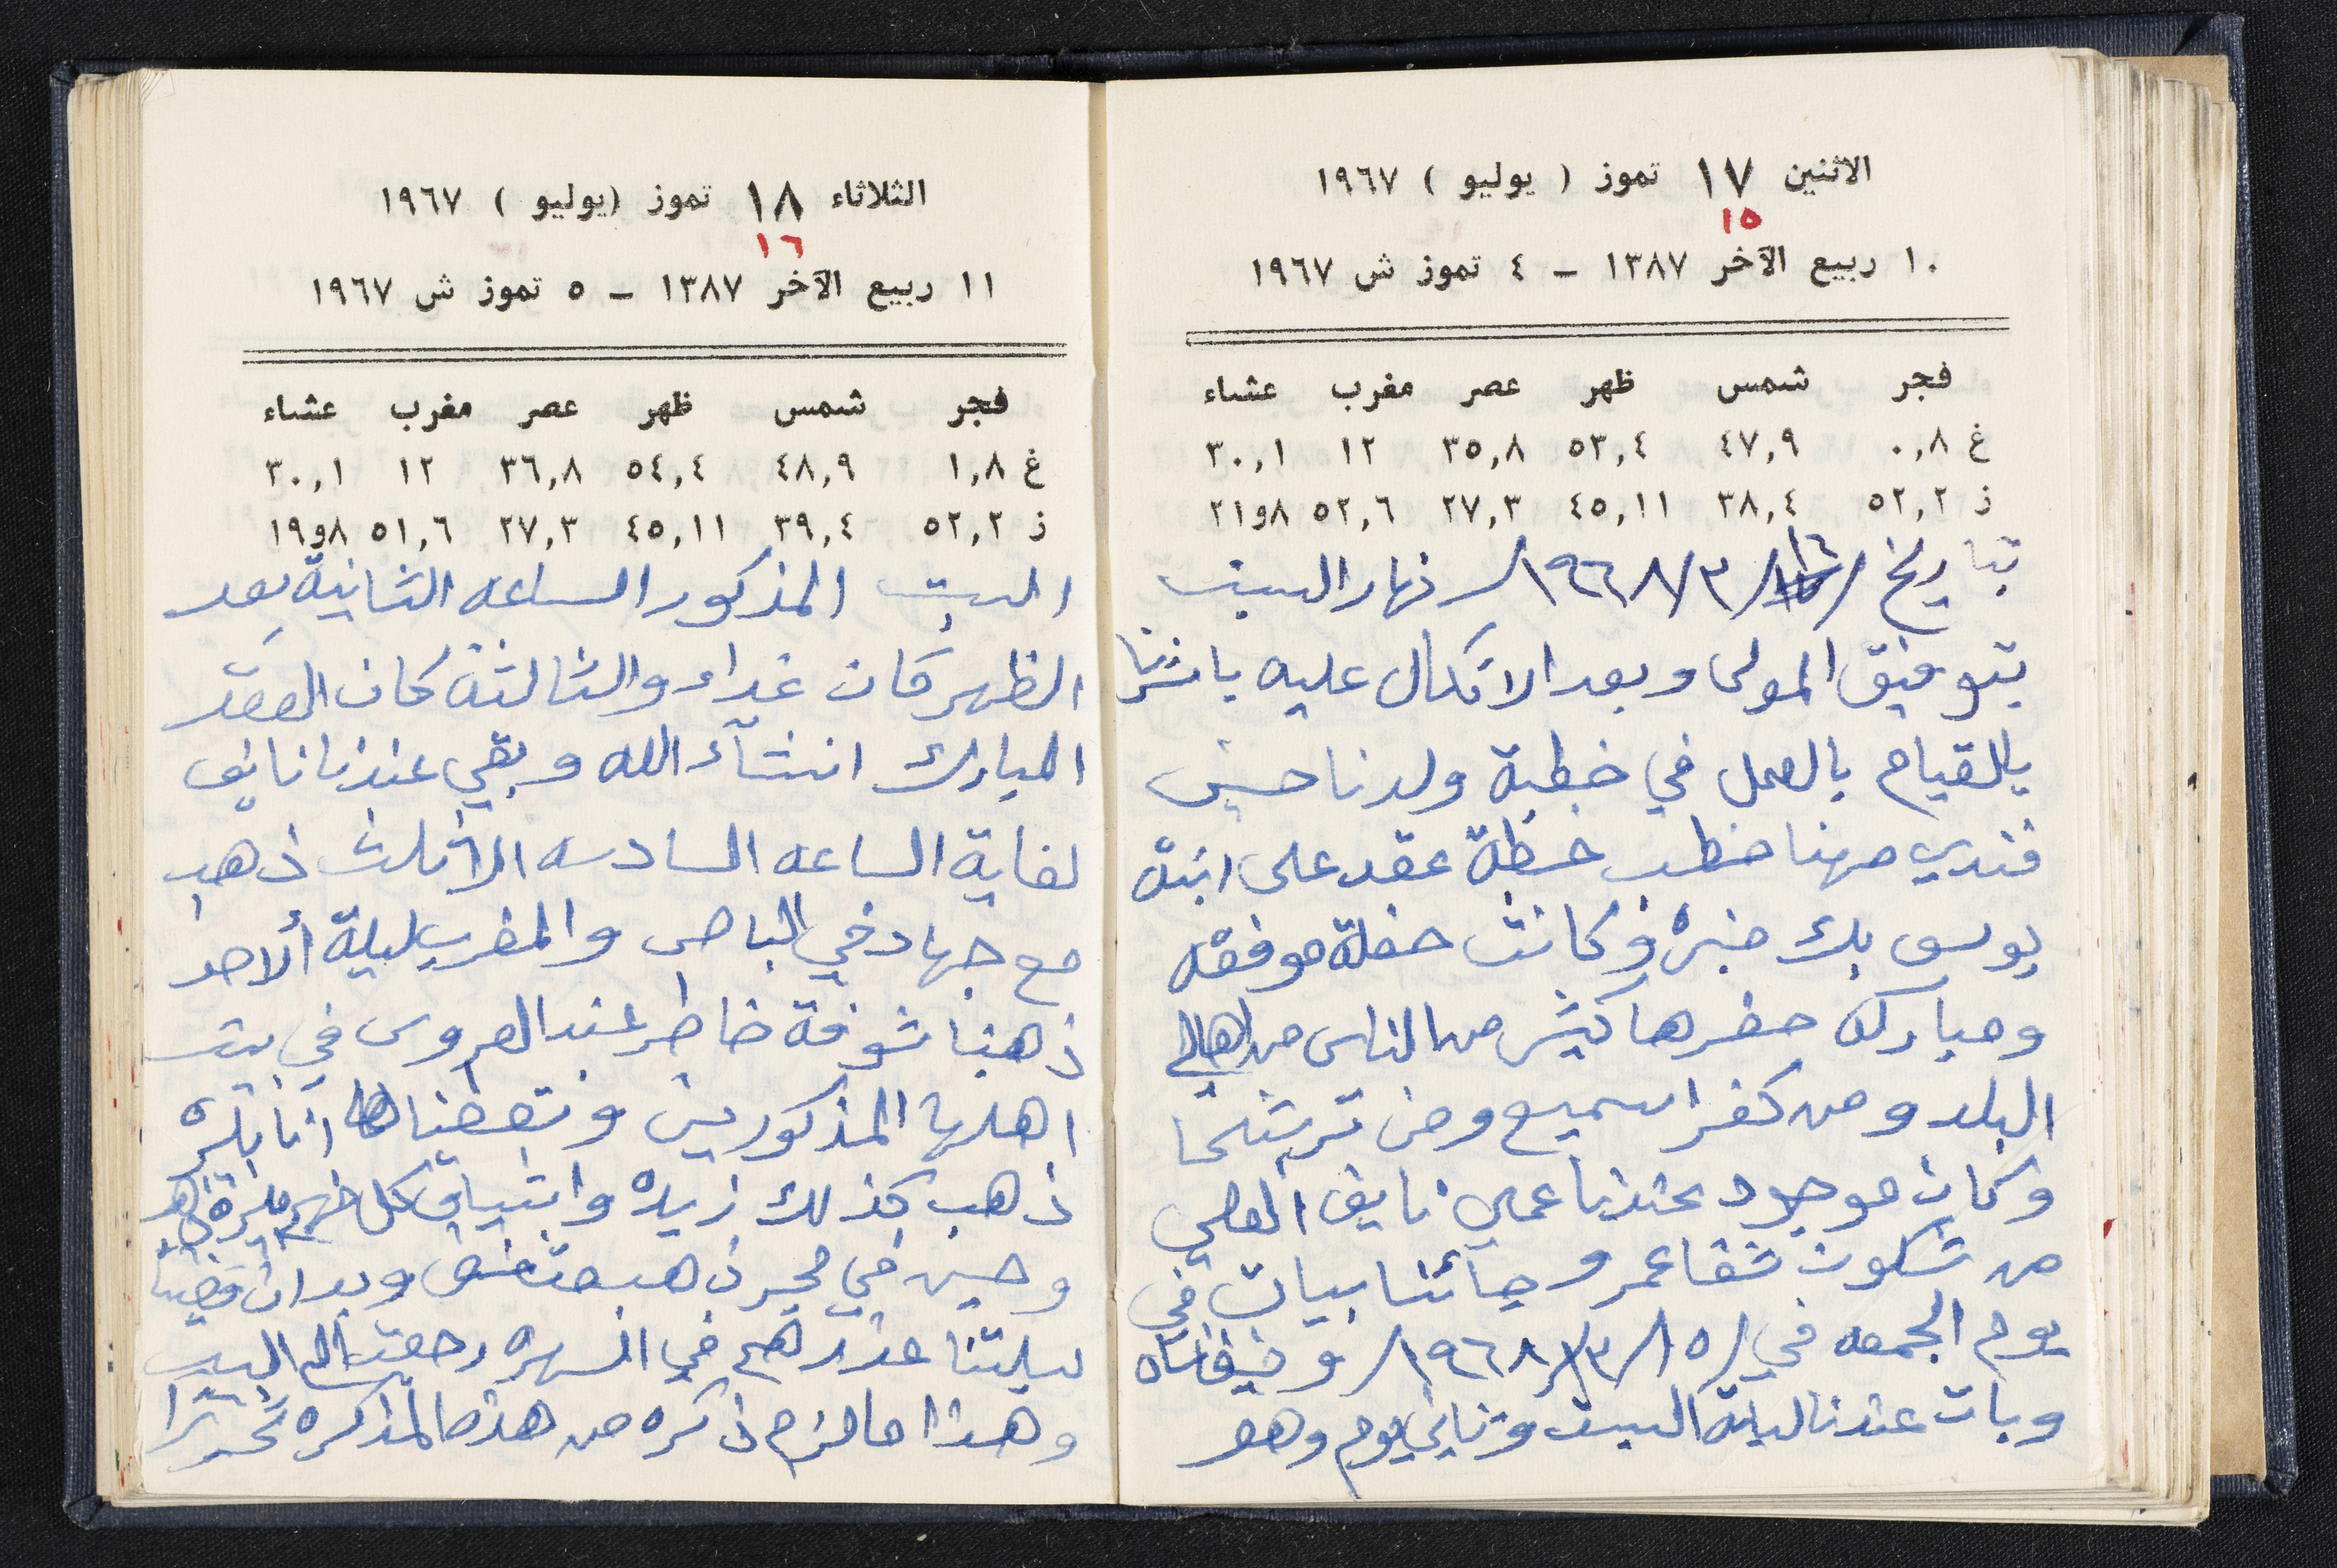 الاثنين ١٧ تموز ( يوليو ) ١٩٦٧
١٥
١٠ ربيع الآخر ١٣٨٧ – ٤ تموز ش ١٩٦٧
فجر شمس ظهر عصر مغرب عشاء
غ ٠,٨ ٤٧,٩ ٥٣,٤ ٣٥,٨ ١٢ ٣٠,١
ز ٥٢,٢ ٣٨,٤ ٤٥,١١ ٢٧,٣ ٥٢,٦ ٢١و٨
بتاريخ /١٦/٣/١٩٦٨/ نهار السبت
بتوفيق المولى وبعد الاتكال عليه باشرنا
بالقيام بالعمل في خطبة ولدنا حسين
فندي مهنا خطب خطبة عقد على ابنة
يوسف بك خير وكانت حفلة موفقه
ومباركه حضرها كثير من الناس من اهالي
البلد ومن كفر اسميع ومن ترشحا
وكان موجود عندنا عمي نايف العلي
من شفاعمر وجائنا بيات في
يوم الجمعه في /١٥/٣/١٩٦٨/ وضيفناه
وبات عندنا ليلة السبت وثاني يوم وهو
الثلاثاء ١٨ تموز (يوليو ) ١٩٦٧
١٦
١١ ربيع الآخر ١٣٨٧ – ٥ تموز ش ١٩٦٧
فجر شمس ظهر عصر مغرب عشاء
غ ١,٨ ٤٨,٩ ٥٤,٤ ٣٦,٨ ١٢ ٣٠,١
ز ٥٢,٢ ٣٩,٤ ٤٥,١١ ٢٧,٣ ٥١,٦ ١٩و٨
السبت المذكور الساعه الثانية بعد
الظهر كان غداء والثالثة كان العقد
المبارك انشآء الله وبقي عندنا نايف
لغاية الساعه السادسه الا ثلث ذهب
مع جهاد في الباص والمغرب ليلة ألاحد
ذهبنا شوفة خاطر عند العروس في بيت
اهلها المذكورين ونقطنا انا بليره
ذهب كذلك زيده وكل ليرة ذهب
وحسين في ذهب وبعد ان قضينا
ليلتنا عندهم في السهره رجعت الى البيت
وهذا ما لزم ذكره من هذه المذكره تحريرا